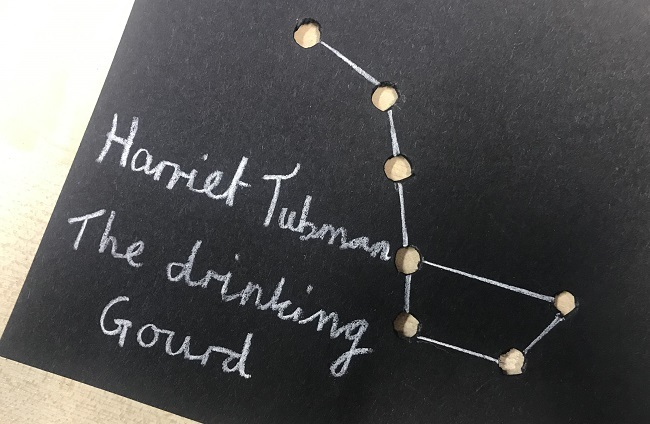 Harriet Tubman
The drinking
Gourd